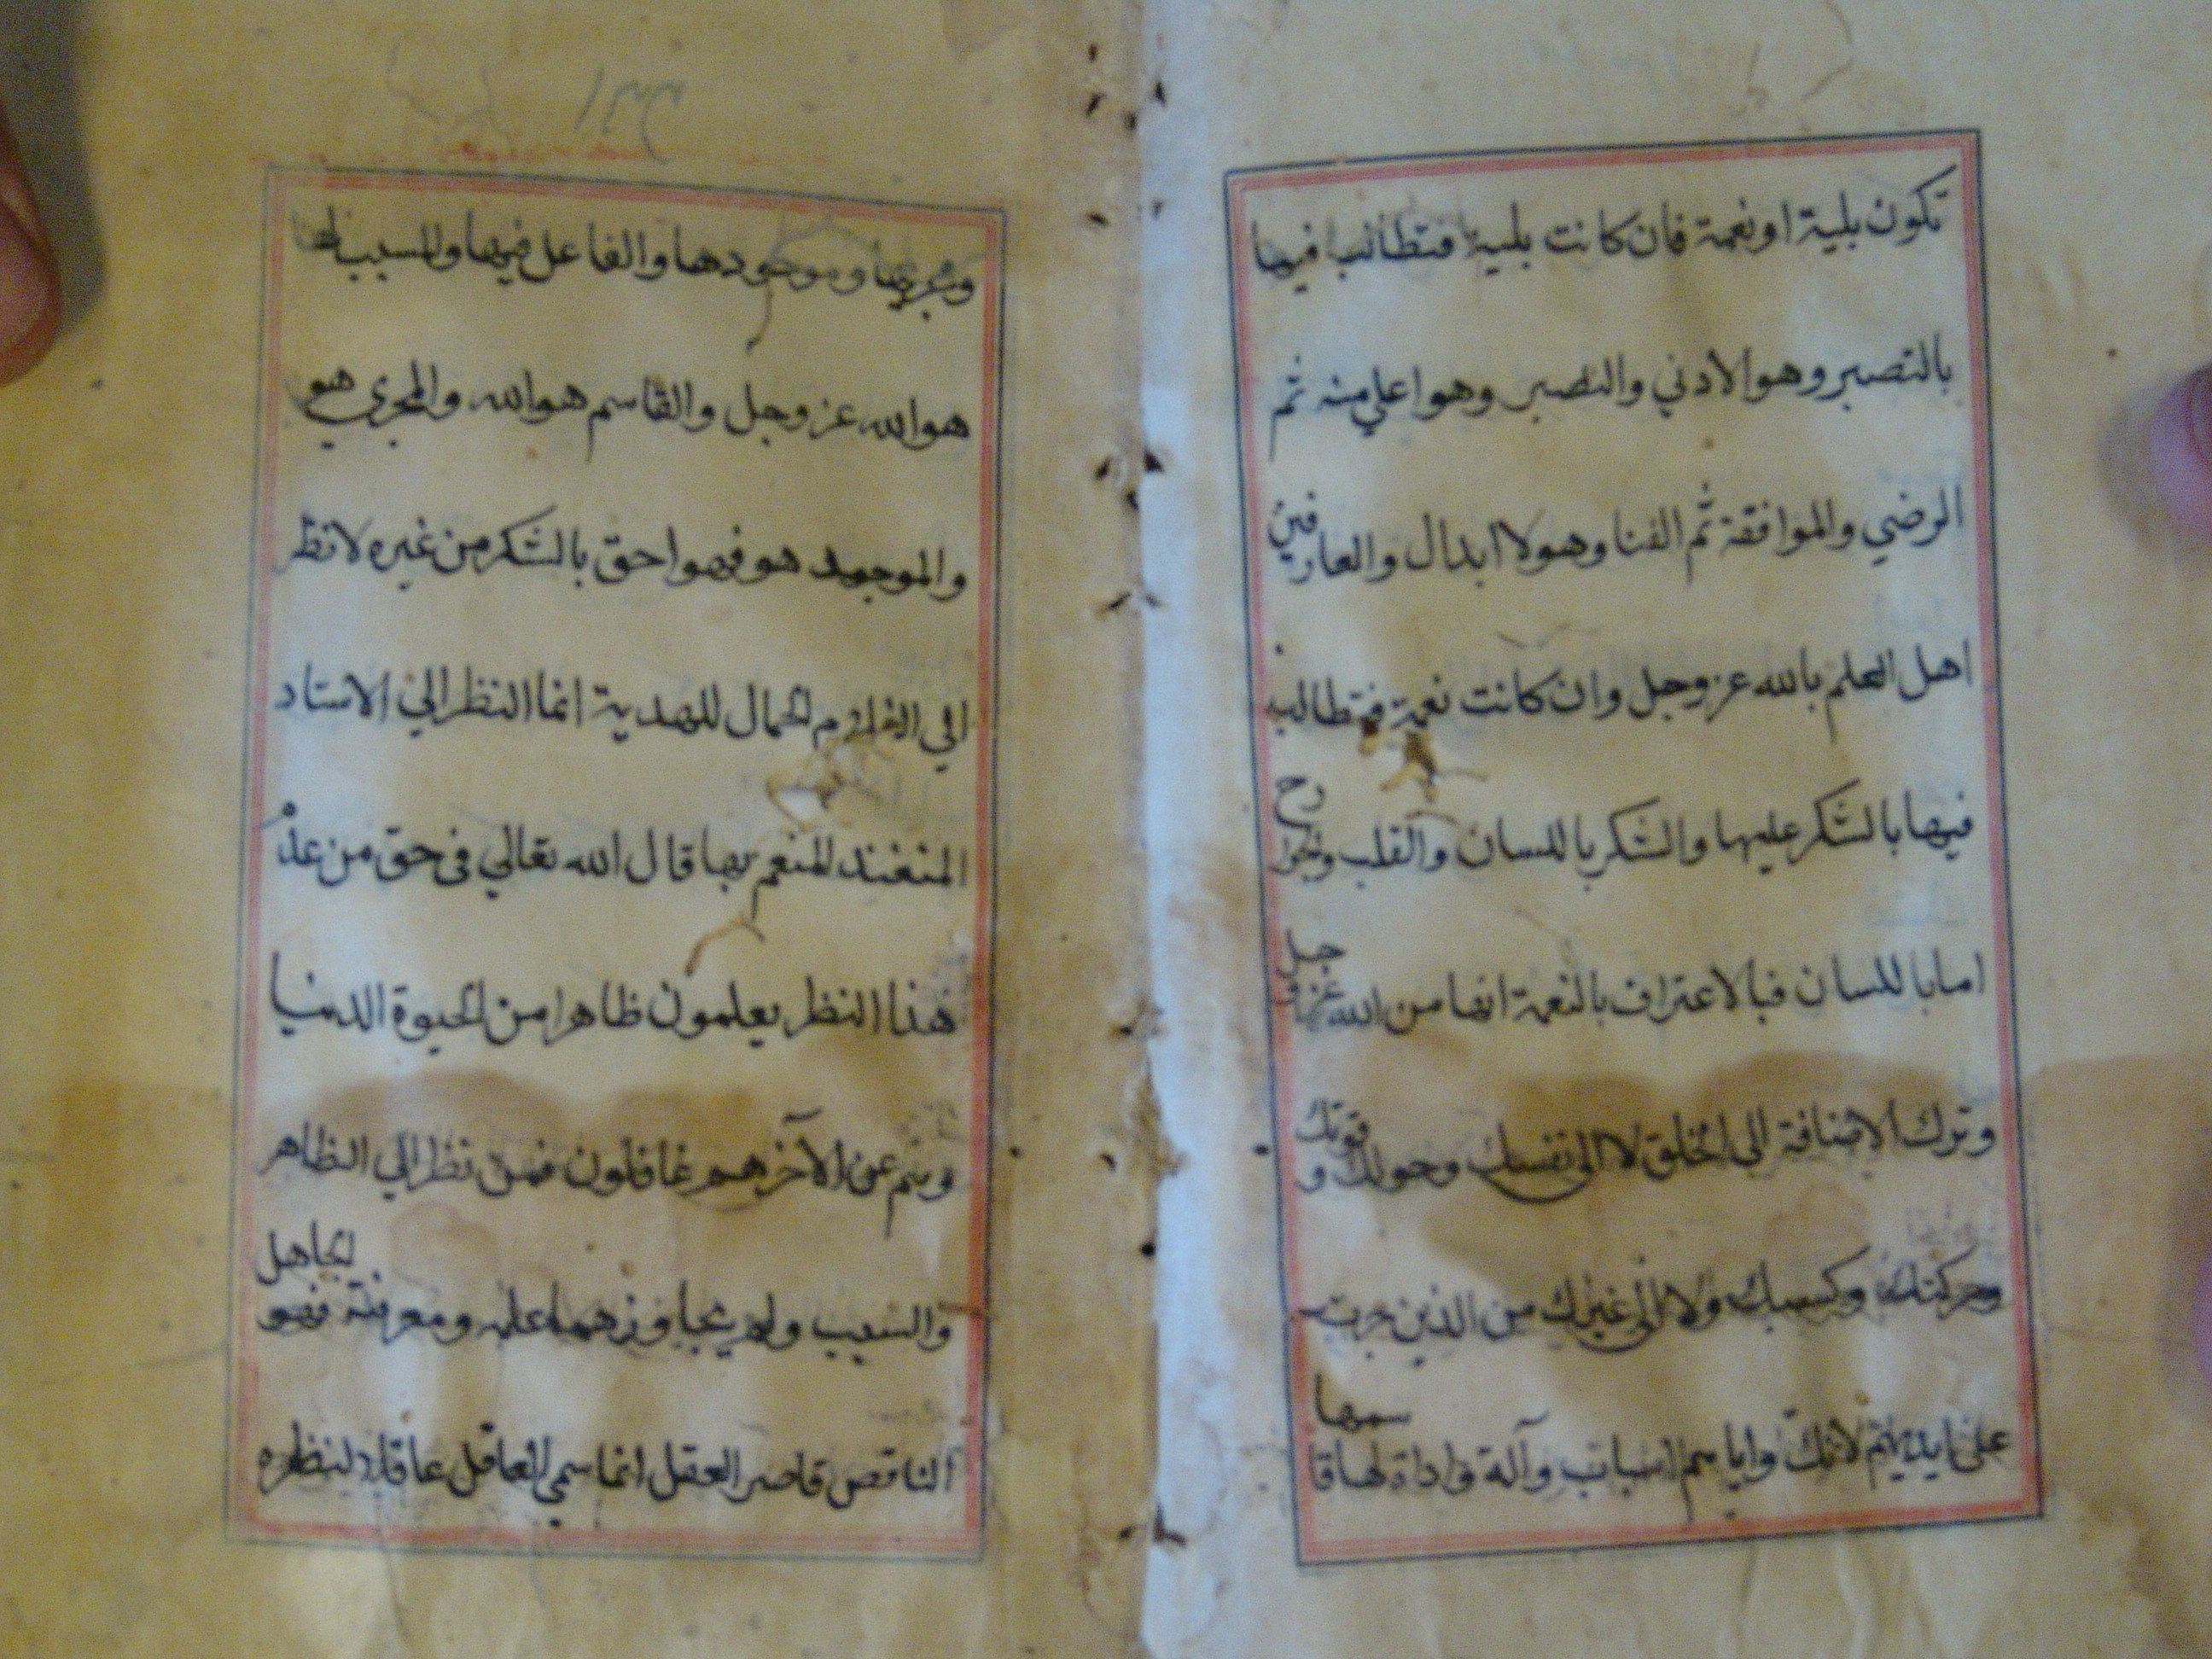 تكون بلية او نعمة فان كانت بلية فتطالب فيها
بالتصبر وهو الادني والصبر وهو اعلي منه ثم
الرضي والموافقة ثم الفنا وهو لا ابدال والعارفين
اهل العلم بالله عز وجل وان كانت نعمة فتطالب
فيها بالشكر عليها والشكر باللسان والقلب والجوارح
اما باللسان فبالاعتراف بالنعمة انها من الله عز وجل
وترك الاضافة الى الخلق لا الى نفسك وحولك وقوتك
وحركتك وكسبك ولا الى غيرك من الذين جرت
على ايديهم لانك واياهم اسباب وآلة واداة لها قاسمها
ومجريها وموجودها والفاعل فيها والمسبب لها
هو الله عز وجل والقاسم هو الله والمجري هو
والموجد هو فهو احق بالشكر من غيره لا نظر
الي الغلام الحمال للهدية انما النظر الي الاستاد
المنعم بها قال الله تعالي في حق من عدم
هذا النظر يعلمون ظاهرا من الحيوة الدنيا
وهم عن الآخرة هم غافلون فمن نظر الي الظاهر
والسبب ولم يجاوزهما علمه ومعرفته فهو الجاهل
الناقص قاصر العقل انما سمي العاقل عاقلا لنظره